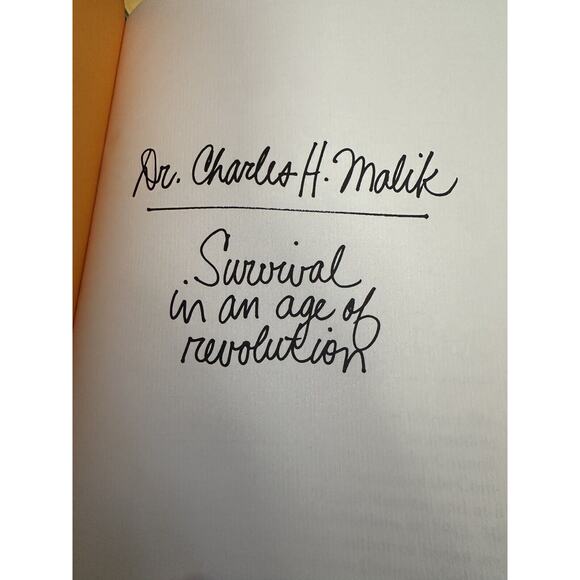 Dr. Charles H. Malik
Survival
in an age of
revolution